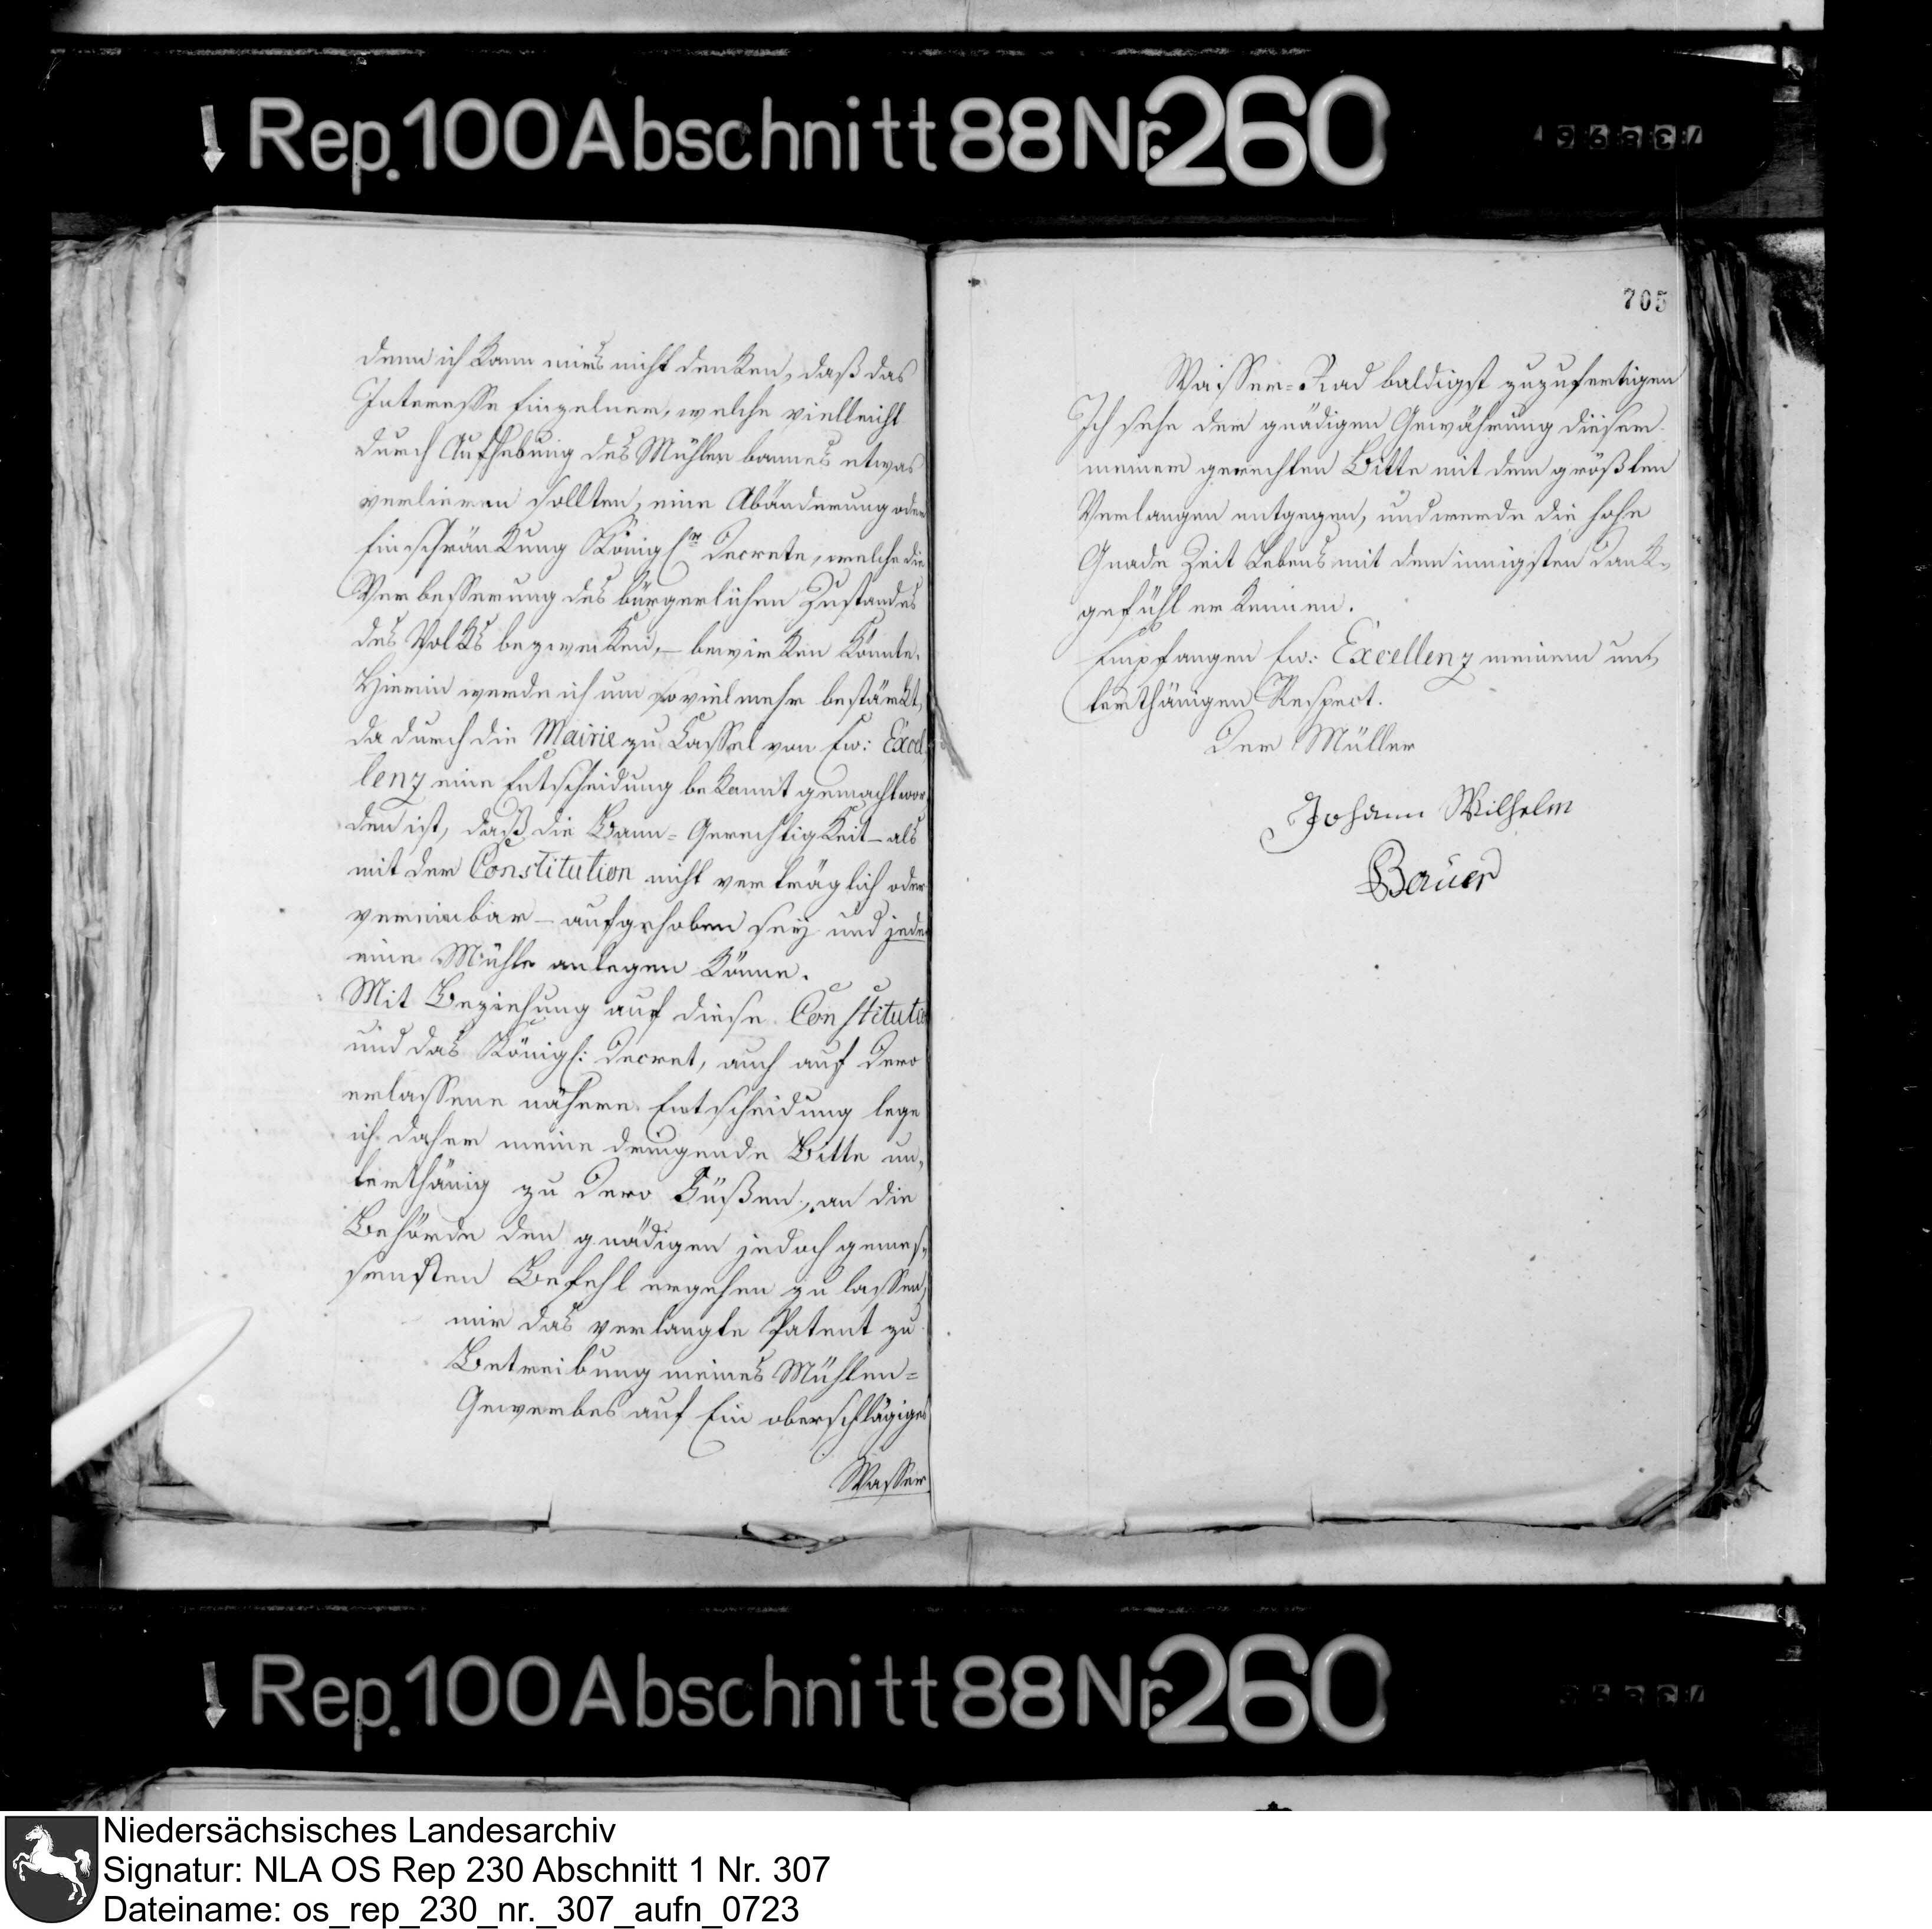 Rep. 100 Abschnitt 88 Nr. 260
denn ich kann mirs nicht denken, daß das
Interesse Einzelner, welche vielleicht
durch Aufhebung des Mühlen bannes etwas
verlieren sollten, eine Abänderung oder
Einschränkung Königl.r Decrete, welche die
Verbesserung des bürgerlichen Zustandes
des Volks bezwecken, – bewirken könnte.
Hierin werde ich um so vielmehr bestärkt,
da durch die Mairie zu Cassel von Ew: Excel
lenz eine Entscheidung bekannt gemacht wor
den ist, daß die Bann-Gerechtigkeit – als
mit der Constitution nicht verträglich oder
vereinbar – aufgehoben sey und jeder
eine Mühle anlegen könne.
Mit Beziehung auf diese Constitutio
und das Königl: Decret, auch auf Dero
erlassene nähere Entscheidung lege
ich daher meine dringende Bitte un,
terthänig zu Dero Füßen, an die
Behörde den gnädigen jedoch gemes,
sensten Befehl ergehen zu lassen,
mir das verlangte Patent zu
Betreibung meines Mühlen-
Gewerbes auf Ein oberschlägiges
Wasser
705
Wasser-Rad baldigst zuzufertigen
Ich sehe der gnädigen Gewährung dieser
meiner gerechten Bitte mit dem größten
Verlangen entgegen, und werde die hohe
Gnade Zeit Lebens mit dem innigsten Dank,
gefühl erkennen.
Empfangen Ew: Excellenz meinen un,
terthänigen Respect.
Der Müller
Johann Wilhelm
Bauer
Rep. 100 Abschnitt 88 Nr. 260
Niedersächsisches Landesarchiv
Signatur: NLA OS Rep 230 Abschnitt 1 Nr. 307
Dateiname: os_rep_230_nr._307_aufn_0723